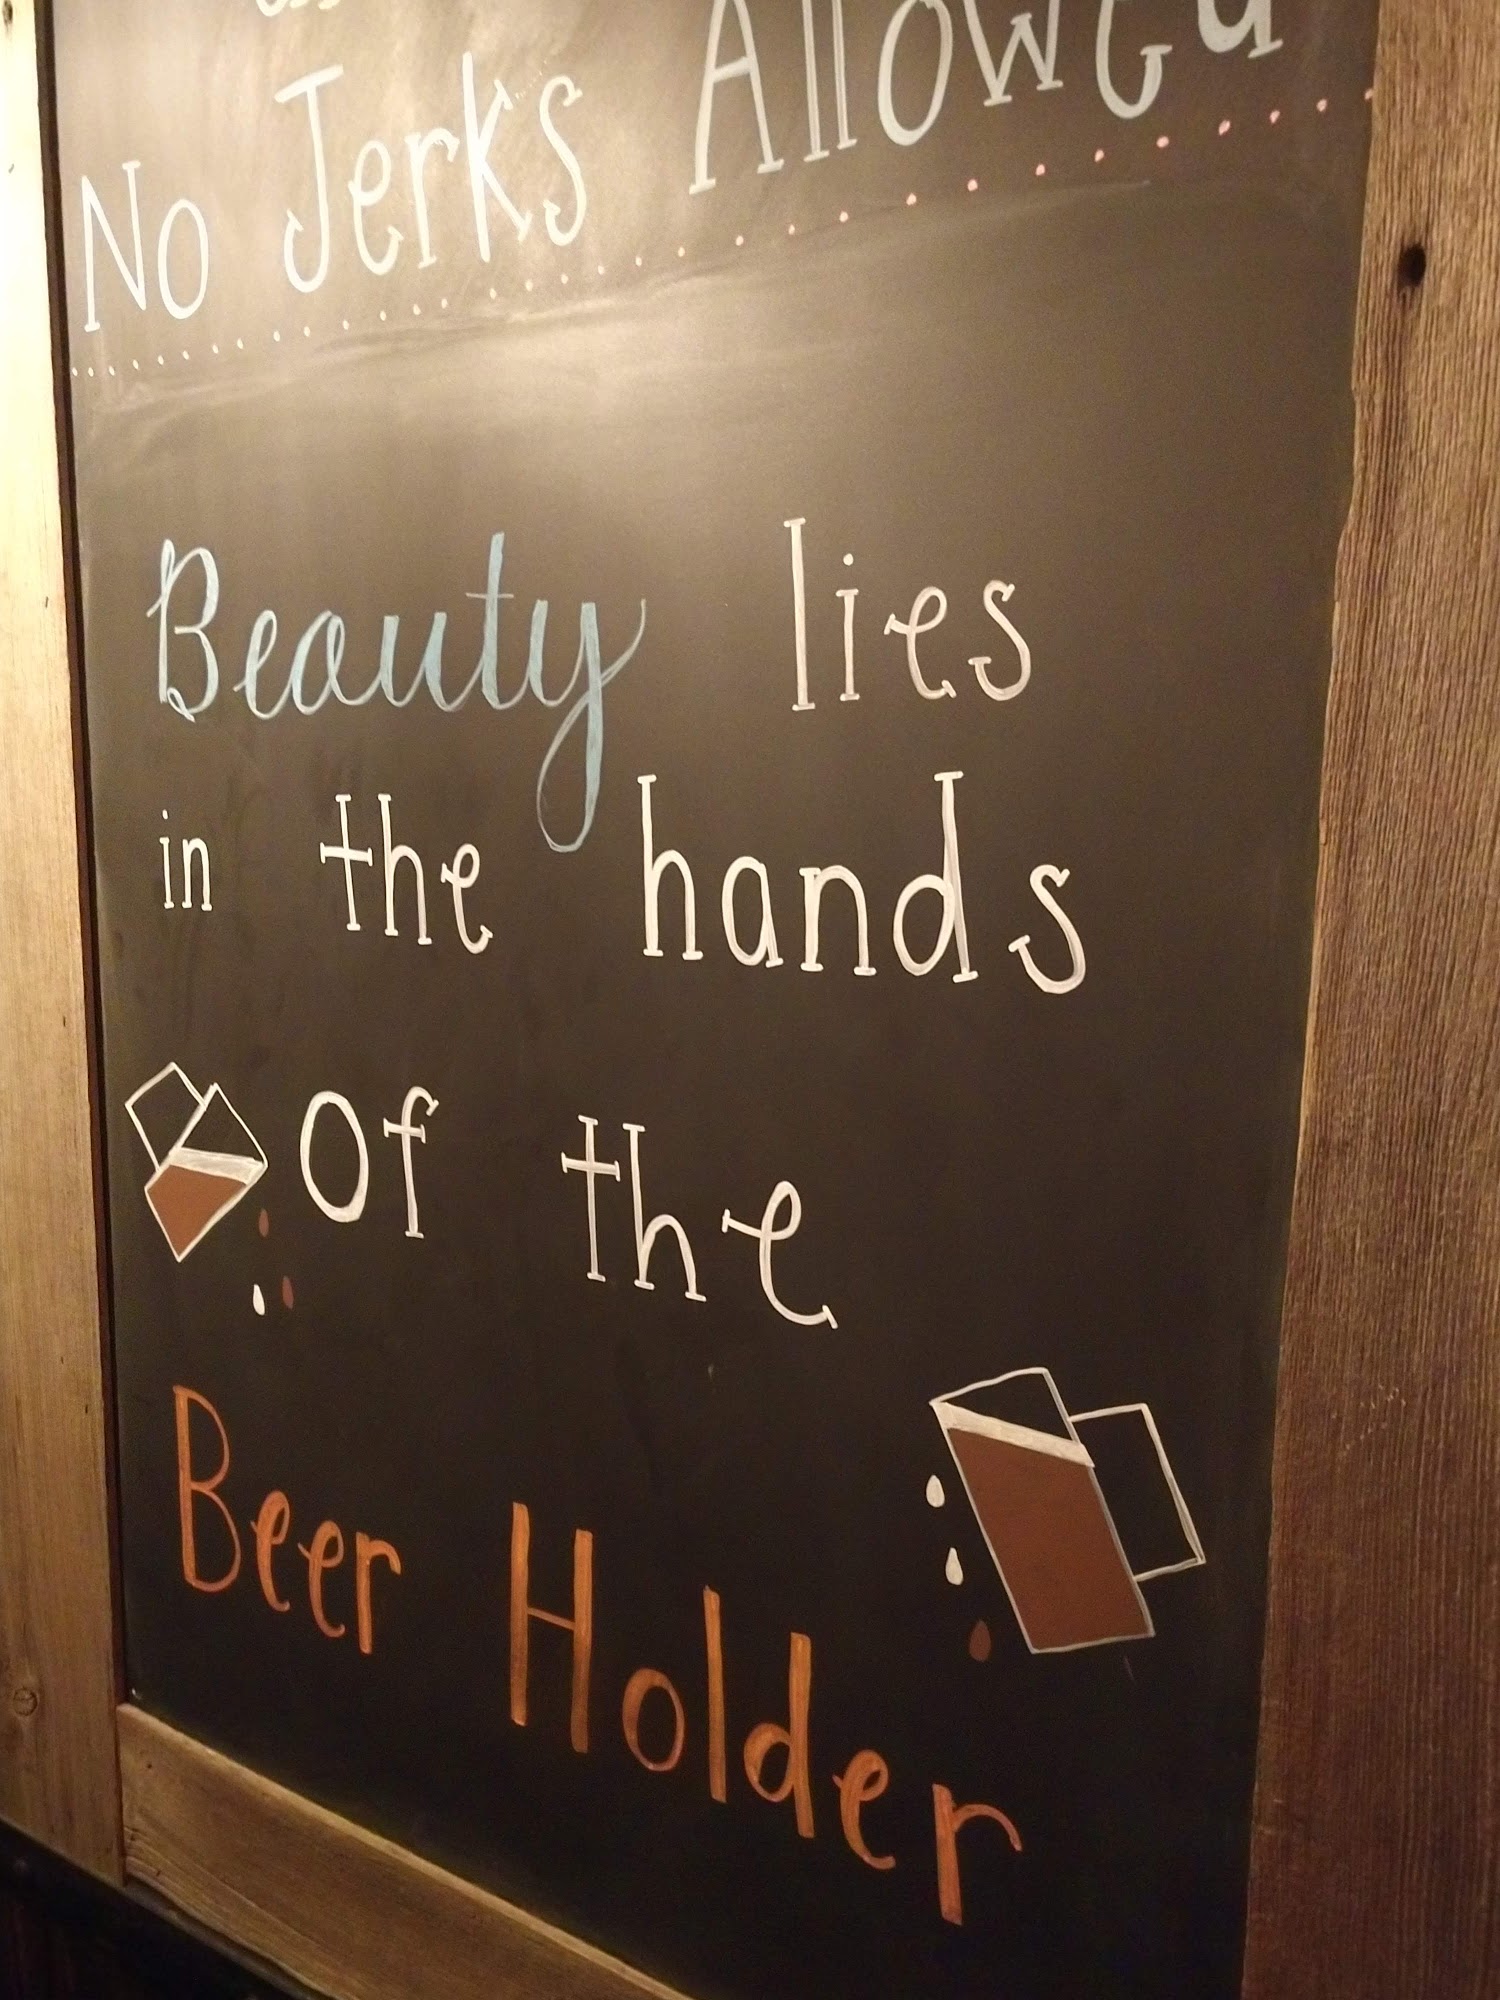 No Jerks Allowed
Beauty lies
in the hands
Of the
Beer Holder